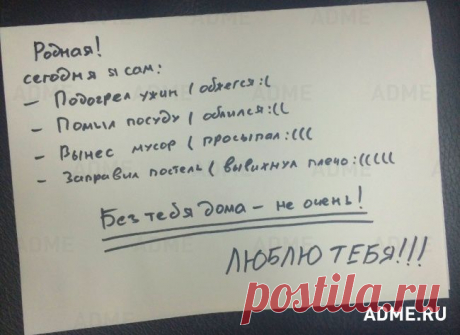 Родная!
сегодня я сам:
- Подогрел ужин (обжегся:(
- Помыл посуду (облился:((
- Вынес мусор (просыпал:(((
- Заправил постель (вывихнул плечо:(((((
Без тебя дома - не очень!
ЛЮБЛЮ ТЕБЯ!!!
ADME.RU
postila.ru